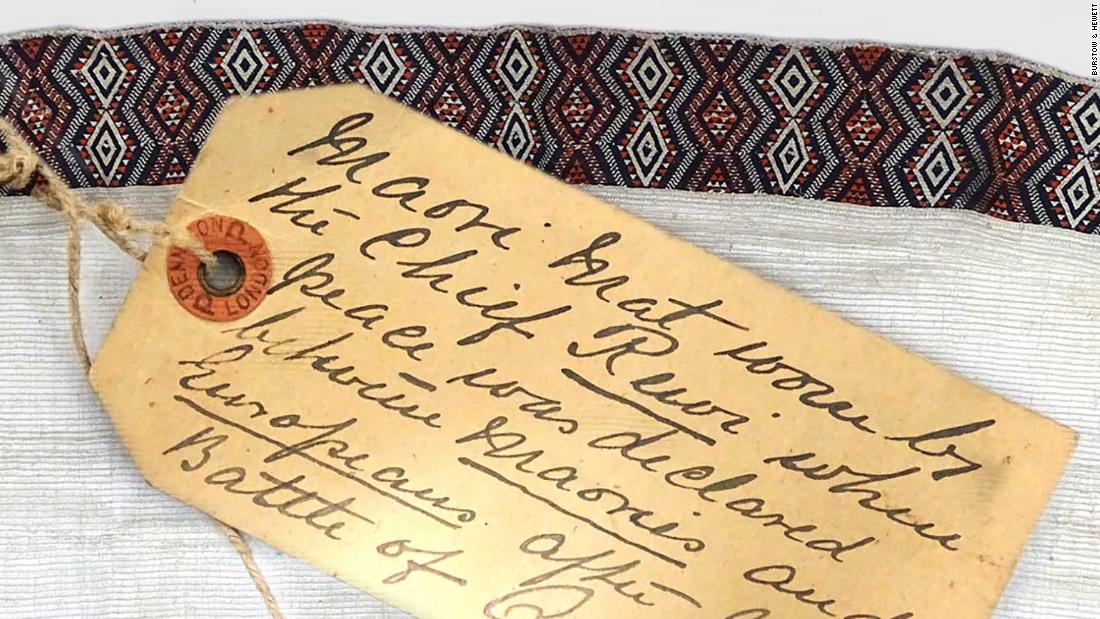 Maori Mat worn by
the Chief Rewi when
peace was declared
between Maoris and
Europeans after
Battle of
DENNISON
LONDON
BURSTOW & HEWETT